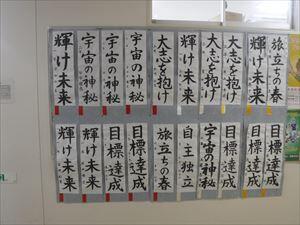 旅立ちの春
輝け未来
大志を抱け
大志を抱け
輝け未来
大志を抱け
宇宙の神秘
宇宙の神秘
宇宙の神秘
輝け未来
目標達成
目標達成
目標達成
宇宙の神秘
自主独立
旅立ちの春
目標達成
目標達成
輝け未来
輝け未来